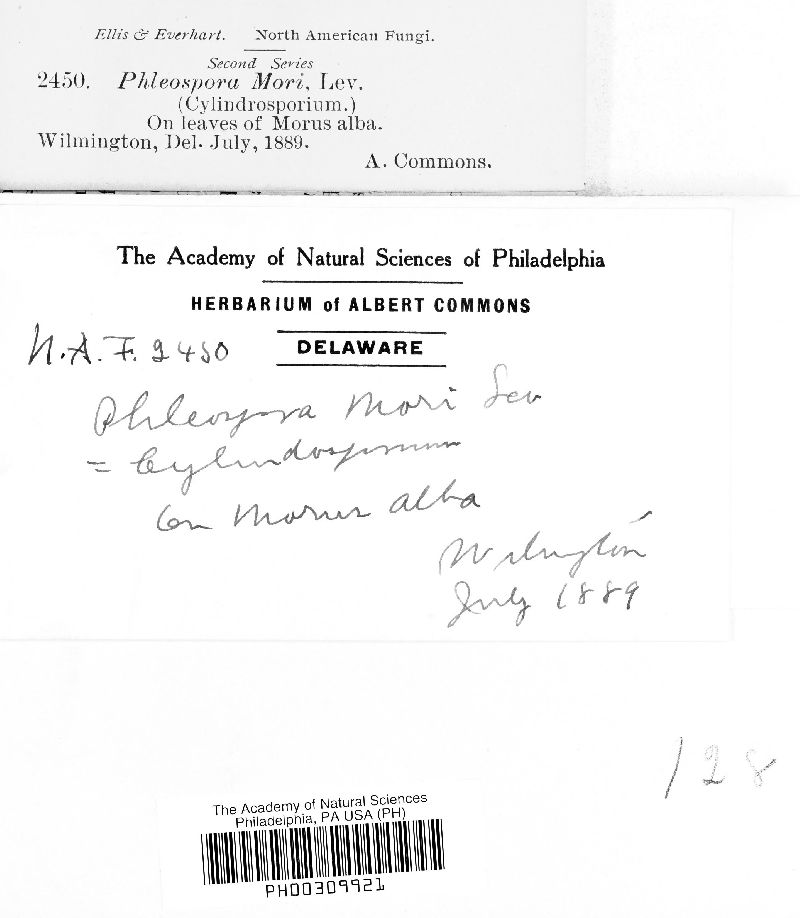 Ellis & Everhart. North American Fungi.
Second Series
2450. Phleospora Mori, Lev.
(Cylindrosporium.)
On leaves of Morus alba.
Wilmington, Del. July, 1889.
A. Commons.
The Academy of Natural Sciences of Philadelphia
HERBARIUM of ALBERT COMMONS
DELAWARE
N.A.F. 2450
Phleospora Mori Lev
= Cylindrosporium
On Morus alba
Wilmington
July 1889
128
The Academy of Natural Sciences
Philadelphia, PA USA (PH)
PH00309921